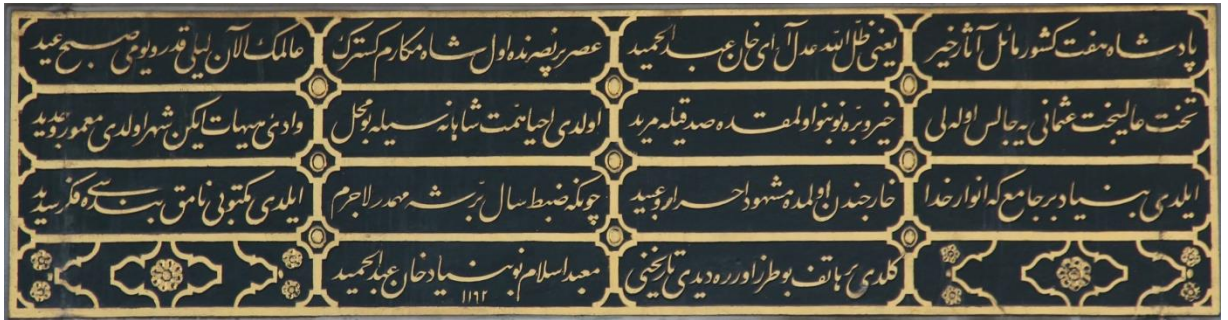 پادشاه هفت كشور مائل آثار خير
يعنى ظل الله عدل آراى خان عبد الحميد
عصر پر نصرنده اول شاه مكارم كسترك
عالمك الآن ليلى قدر و يومى صبح عيد
تخت عاليبخت عثمانى يه جالس اوله لى
خير و بره نو بنو اولمقده صدقيله مريد
اولدى احيا همت شاهانه سيله بو محل
وادئ هيهات ايكن شهر اولدى معمور و جديد
ايلدى بنياد بر جامع كه انوار خدا
خارجندن اولمده مشهود احرار و عبيد
چونكه ضبط سال بر شه مهمدر لاجرم
ايلدى مكتوبى نامق بنده سى ده فكر سديد
كلدى بر هاتف بو طرز اوزره ديدى تاريخنى
معبد اسلام نو بنياد خان عبد الحميد
١١٩٢